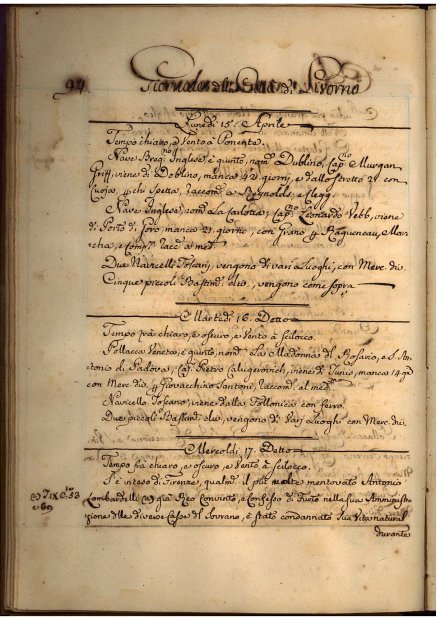 94 Giornale della Città di Livorno
Lunedì 15. Aprile
Tempo chiaro, e Vento à Ponente.
Nave Bregi.no Inglese, è giunto, nom.º Dublino, Cap.no Murgan
Griff, viene di Doblino, manca 42 giorni, e dallo stretto 21 con
Cuoja, p chi spetta, Raccom.a à Reynolds, e Clegg.
Nave Inglese, nom.a La Carlotta, Cap.no Leonardo Vebb, viene
di Porto di Goro, manca 21. giorno, con Grano p Ragueneau, Mar-
cha, e Comp.i Racc.a al med.
Due Navicelli Toscani, vengono di varj Luoghi, con Merc. div.
Cinque piccoli Bastim.ti else, vengono come sopra
Martedì 16. Detto
Tempo frà chiaro, e oscuro, e Vento à Scilocco.
Pollacca Veneta, è giunta, nom.a La Madonna del Rosario, e S. An-
tonio di Padova, Cap. Pietro Caligerovich, viene di Junio, manca 14 g.i
con Merc. div. p Giovacchino Santoni, Raccom. al med.
Navicello Toscano, viene dalla Follonica con ferro.
Due piccoli Bastim. else, vengono di Varj Luoghi con Merc. div.
Mercoldì, 17. Detto
Tempo frà chiaro, e oscuro, e Vento à Scilocco.
S'è inteso di Firenze, qualm.te il più volte mentovato Antonio
Lombardelli (a) già Reo Convinto, e Confesso di Furto nella sua Amministra-
zione delle diverse Casse del Sovrano, è stato condannato Sua Vita natural
durante
(a) T. IX C. 53
e 69